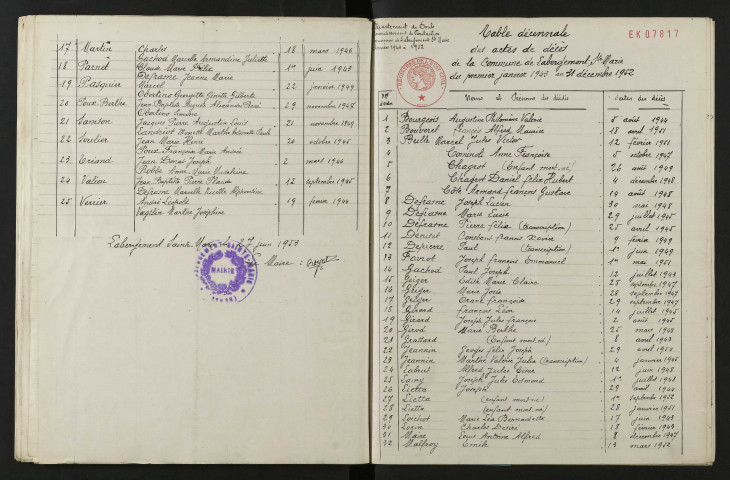 17 Martin Charles 18 mars 1946
Gachod Marcelle Armandine Juliette
18 Parnet Claude Marie Félix 1er juin 1943
Defrasne Jeanne Marie
19 Pasquier Marcel 22 janvier 1949
Obertino Georgette Ginette Gilberte
20 Poux Berthe Jean Baptiste Auguste Alexandre René 29 novembre 1947
21 Jacques Pierre Augustin Louis 21 novembre 1949
22 Jean Marie René 24 octobre 1945
Poux Françoise Marie
23 Jean Marie Joseph 2 mars 1944
Bobbe Anne Marie Madeleine
24 Valion Jean Baptiste Pierre Placide 12 septembre 1945
Defrasne Marcelle Alphonsine
25 Verrier André Léopold 19 février 1944
Joséphine
Labergement Sainte Marie le 7 juin 1953
Le Maire :
MAIRIE
Département du Doubs
Arrondissement de Pontarlier
Commune de Labergement Ste Marie
Table décennale
EK07817
des actes de décès
de la Commune de Labergement Ste Marie
du premier janvier 1943 au 31 décembre 1952
Noms et Prénoms des décédés Dates des décès
1 Bourgeois Augustine Philomène Valérie 5 août 1944
2 Bouveret François Alfred Maurice 18 avril 1951
3 Bulle Marcel Jules Victor 12 février 1951
4 Anne Françoise 5 octobre 1947
5 Chagest (Enfant mort-né) 26 août 1949
6 Chagest Daniel Félix Hubert 4 décembre 1948
7 Côte Armand François Gustave 14 août 1948
8 Defrasne Joseph Lucien 30 mai 1948
9 Defrasne Marie Lucie 29 juillet 1945
10 Defrasne Pierre Félix (transcription) 25 avril 1945
11 Deniset Constant Francis Xavier 9 février 1949
12 Depierre Paul (transcription) 1er juin 1949
13 Favrot Joseph François Emmanuel 1er mai 1951
14 Gachod Paul Joseph 12 juillet 1944
15 Geiger Edith Marie Claire 28 septembre 1947
16 Geiger Marie Josée 26 septembre 1947
17 Geiger François 29 septembre 1947
18 Girard François Léon 14 juillet 1945
19 Girard Joseph Jules François 2 août 1945
20 Girod Marie Berthe 25 mars 1943
21 Grattard (Enfant mort-né) 8 avril 1943
22 Jeannin Georges Félix Joseph 29 avril 1950
23 Jeannin Marthe Valérie Julia (transcription) 4 janvier 1945
24 Labrut Alfred Jules César 12 juin 1948
25 Lamy Joseph Jules Edmond 1er juillet 1943
26 Liette Joseph 29 avril 1944
27 Liette (enfant mort-né) 1er septembre 1952
28 Liette (enfant mort-né) 28 janvier 1951
29 Lorchot Marie Léa Bernadette 17 juin 1943
30 Lorin Charles Désiré 18 février 1943
31 Maire Louis Antoine Alfred 8 décembre 1947
32 Malfroy Emile 13 mars 1952